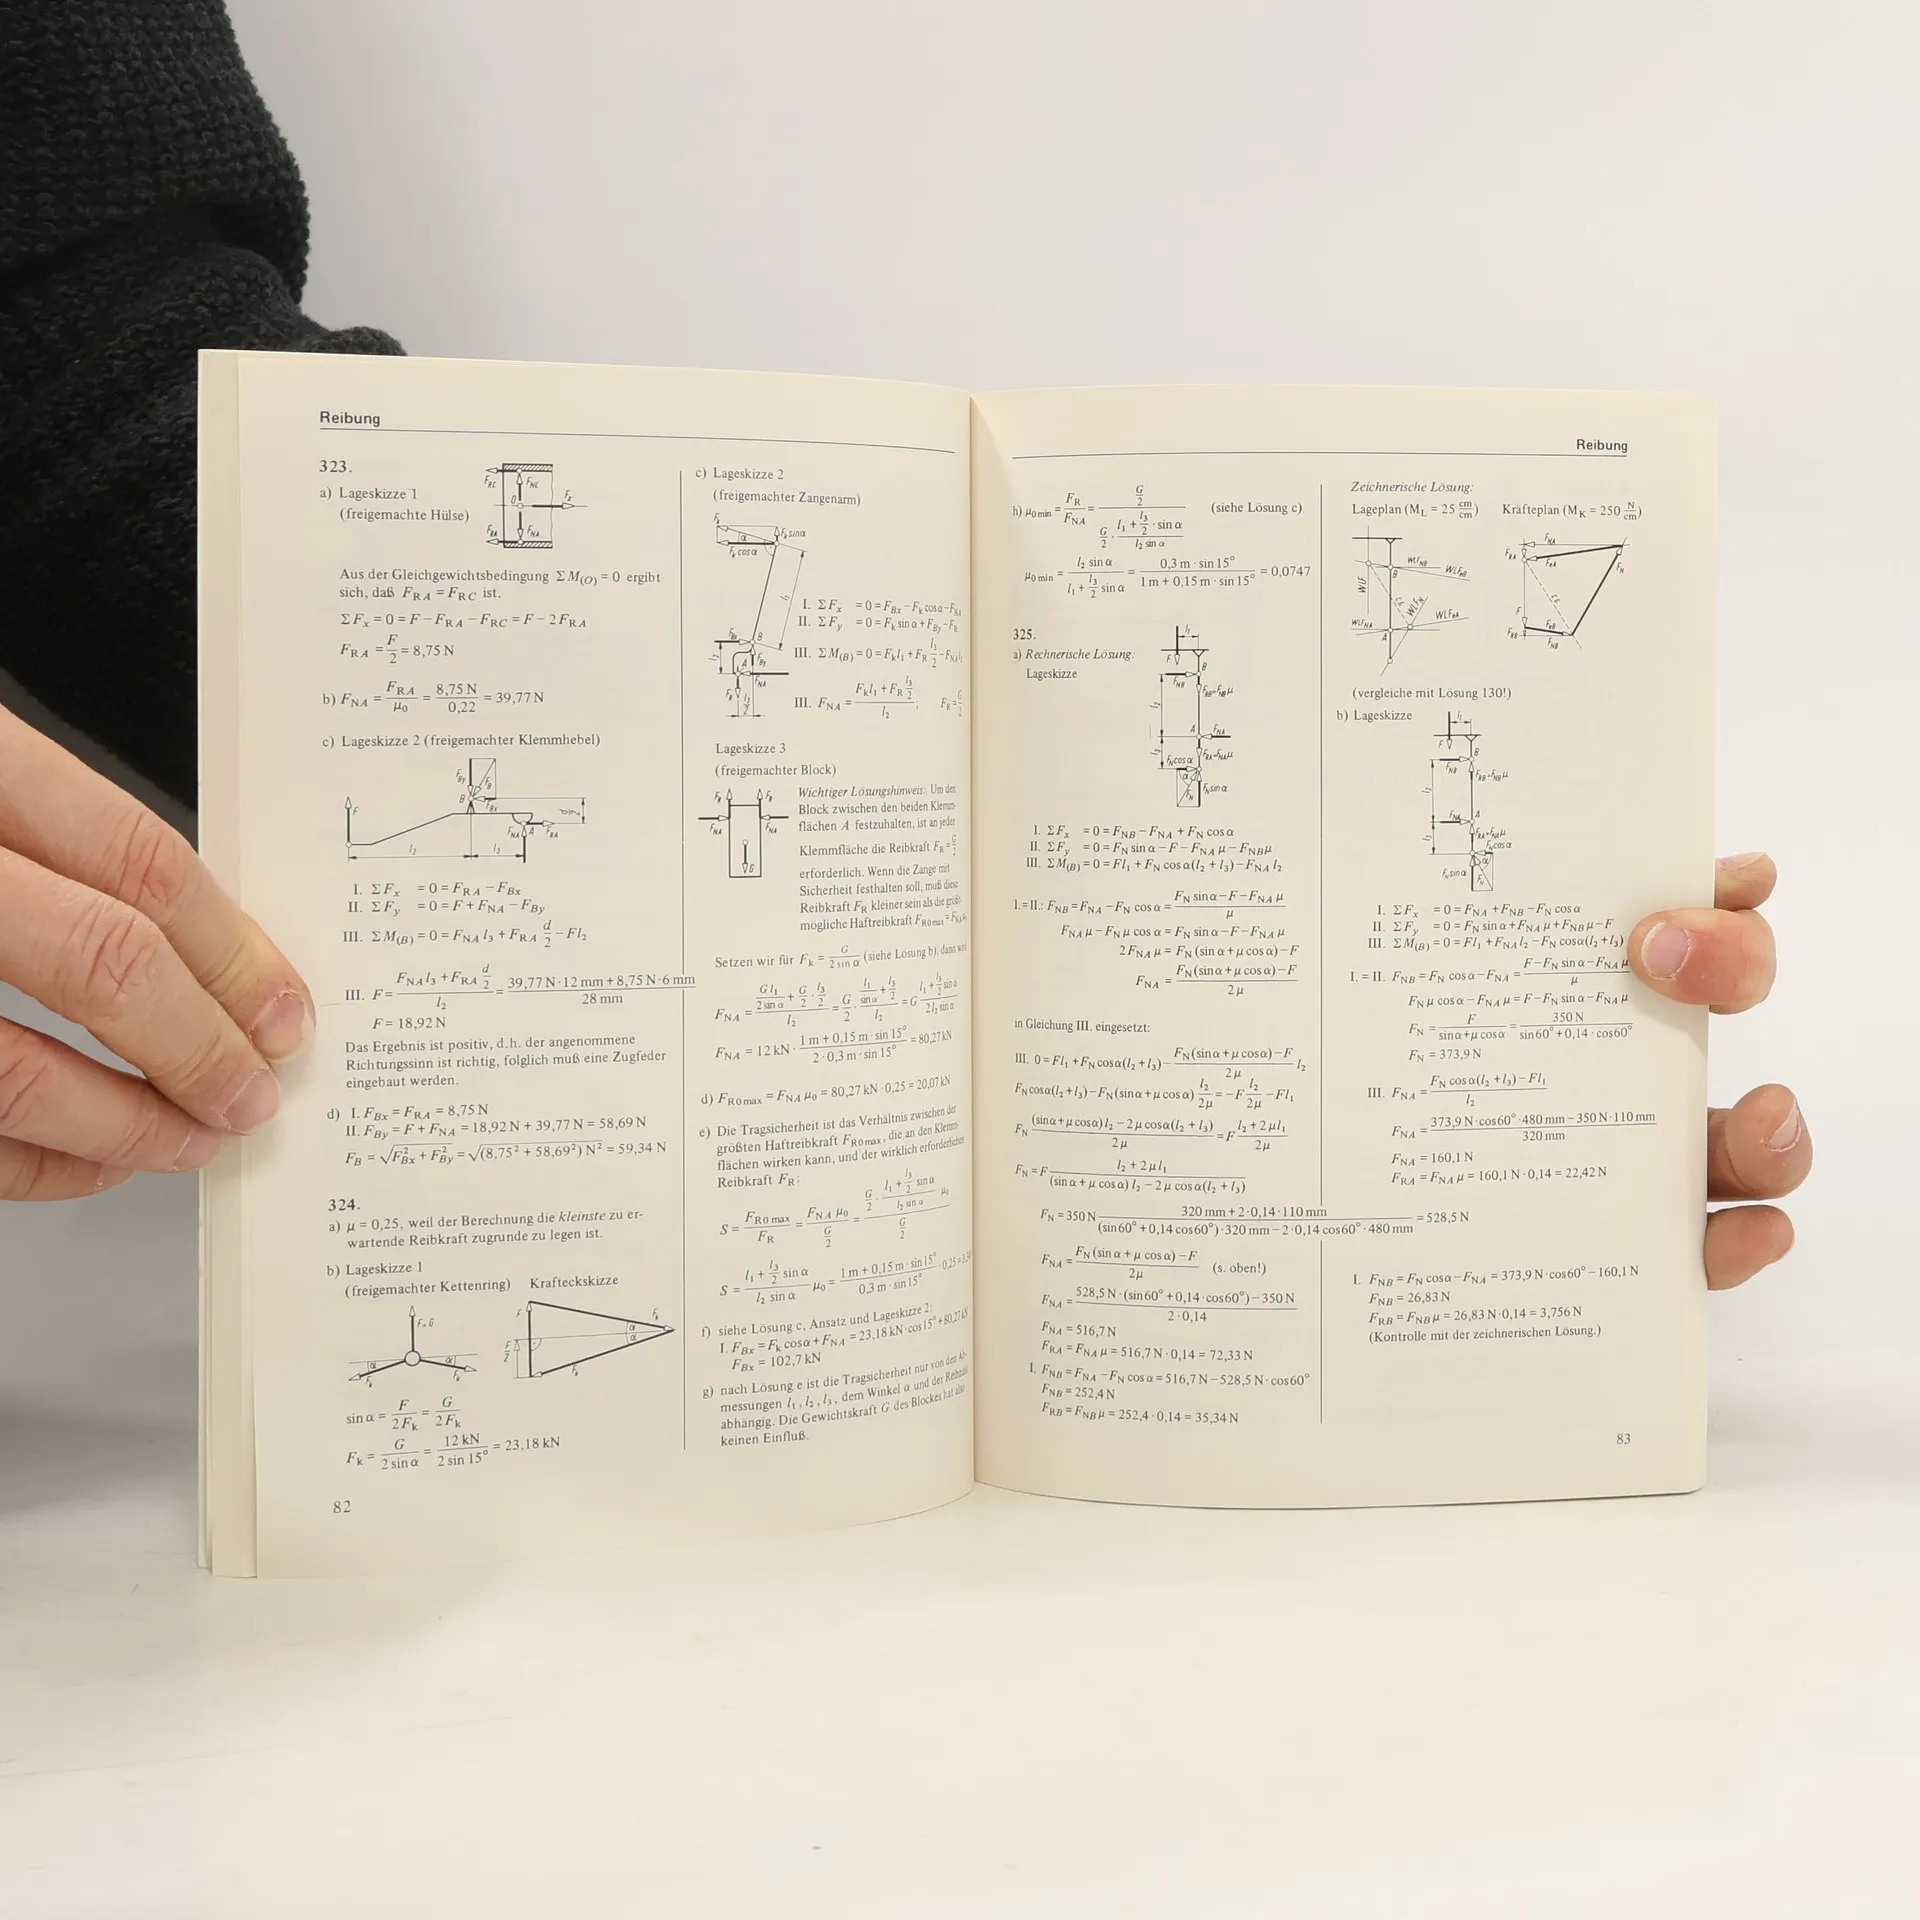 Reibung
323.
a) Lageskizze 1
(freigemachte Hülse)
Aus der Gleichgewichtsbedingung ΣM(O) = 0 ergibt
sich, daß F_RA = F_RC ist.
ΣF_x = 0 = F − F_RA − F_RC = F − 2F_RA
F_RA = F/2 = 8,75 N
b) F_NA = F_RA/μ_0 = 8,75 N/0,22 = 39,77 N
c) Lageskizze 2 (freigemachter Klemmhebel)
I. ΣF_x = 0 = F_RA − F_Bx
II. ΣF_y = 0 = F + F_NA − F_By
III. ΣM(B) = 0 = F_NA l_3 + F_RA d/2 − Fl_2
III. F = (F_NA l_3 + F_RA d/2)/l_2 = (39,77 N · 12 mm + 8,75 N · 6 mm)/28 mm
F = 18,92 N
Das Ergebnis ist positiv, d.h. der angenommene
Richtungssinn ist richtig, folglich muß eine Zugfeder
eingebaut werden.
d) I. F_Bx = F_RA = 8,75 N
II. F_By = F + F_NA = 18,92 N + 39,77 N = 58,69 N
F_B = √(F²_Bx + F²_By) = √((8,75² + 58,69²) N²) = 59,34 N
324.
a) μ = 0,25, weil der Berechnung die kleinste zu er-
wartende Reibkraft zugrunde zu legen ist.
b) Lageskizze 1
(freigemachter Kettenring) Krafteckskizze
sin α = F/(2F_k) = G/(2F_k)
F_k = G/(2 sin α) = 12 kN/(2 sin 15°) = 23,18 kN
82
c) Lageskizze 2
(freigemachter Zangenarm)
I. ΣF_x = 0 = F_Bx − F_k cos α − F_NA
II. ΣF_y = 0 = F_k sin α + F_By − F_R
III. ΣM(B) = 0 = F_k l_1 + F_R l_3/2 − F_NA l_2
III. F_NA = (F_k l_1 + F_R l_3/2)/l_2; F_R = G/2
Lageskizze 3
(freigemachter Block)
Wichtiger Lösungshinweis: Um den
Block zwischen den beiden Klemm-
flächen A festzuhalten, ist an jeder
Klemmfläche die Reibkraft F_R = G/2
erforderlich. Wenn die Zange mit
Sicherheit festhalten soll, muß diese
Reibkraft F_R kleiner sein als die größt-
mögliche Haftreibkraft F_R0max = F_NA μ_0
Setzen wir für F_k = G/(2 sin α) (siehe Lösung b), dann wird
F_NA = (Gl_1/(2 sin α) + G/2 · l_3/2)/l_2 = G/2 · (l_1/sin α + l_3/2)/l_2 = G (l_1 + l_3/2 sin α)/(2 l_2 sin α)
F_NA = 12 kN · (1 m + 0,15 m · sin 15°)/(2 · 0,3 m · sin 15°) = 80,27 kN
d) F_R0max = F_NA μ_0 = 80,27 kN · 0,25 = 20,07 kN
e) Die Tragsicherheit ist das Verhältnis zwischen der
größten Haftreibkraft F_R0max, die an den Klemm-
flächen wirken kann, und der wirklich erforderlichen
Reibkraft F_R:
S = F_R0max/F_R = F_NA μ_0/(G/2) = (G/2 · (l_1 + l_3/2 sin α)/(l_2 sin α) · μ_0)/(G/2)
S = (l_1 + l_3/2 sin α)/(l_2 sin α) μ_0 = (1 m + 0,15 m · sin 15°)/(0,3 m · sin 15°) · 0,25 = 3,34
f) siehe Lösung c, Ansatz und Lageskizze 2:
I. F_Bx = F_k cos α + F_NA = 23,18 kN · cos 15° + 80,27 kN
F_Bx = 102,7 kN
g) nach Lösung e ist die Tragsicherheit nur von den Ab-
messungen l_1, l_2, l_3, dem Winkel α und der Reibzahl
abhängig. Die Gewichtskraft G des Blockes hat also
keinen Einfluß.
Reibung
h) μ_0min = F_R/F_NA = (G/2)/(G/2 · (l_1 + l_3/2 · sin α)/(l_2 sin α)) (siehe Lösung c)
μ_0min = l_2 sin α/(l_1 + l_3/2 sin α) = 0,3 m · sin 15°/(1 m + 0,15 m · sin 15°) = 0,0747
325.
a) Rechnerische Lösung:
Lageskizze
I. ΣF_x = 0 = F_NB − F_NA + F_N cos α
II. ΣF_y = 0 = F_N sin α − F − F_NA μ − F_NB μ
III. ΣM(B) = 0 = Fl_1 + F_N cos α(l_2 + l_3) − F_NA l_2
I. = II.: F_NB = F_NA − F_N cos α = (F_N sin α − F − F_NA μ)/μ
F_NA μ − F_N μ cos α = F_N sin α − F − F_NA μ
2F_NA μ = F_N (sin α + μ cos α) − F
F_NA = (F_N (sin α + μ cos α) − F)/(2μ)
in Gleichung III. eingesetzt:
III. 0 = Fl_1 + F_N cos α(l_2 + l_3) − (F_N (sin α + μ cos α) − F)/(2μ) l_2
F_N cos α(l_2 + l_3) − F_N (sin α + μ cos α) l_2/(2μ) = −F l_2/(2μ) − Fl_1
F_N ((sin α + μ cos α) l_2 − 2μ cos α(l_2 + l_3))/(2μ) = F (l_2 + 2μl_1)/(2μ)
F_N = F (l_2 + 2μl_1)/((sin α + μ cos α) l_2 − 2μ cos α(l_2 + l_3))
F_N = 350 N (320 mm + 2 · 0,14 · 110 mm)/((sin 60° + 0,14 cos 60°) · 320 mm − 2 · 0,14 cos 60° · 480 mm) = 528,5 N
F_NA = (F_N (sin α + μ cos α) − F)/(2μ) (s. oben!)
F_NA = (528,5 N · (sin 60° + 0,14 · cos 60°) − 350 N)/(2 · 0,14)
F_NA = 516,7 N
F_RA = F_NA μ = 516,7 N · 0,14 = 72,33 N
I. F_NB = F_NA − F_N cos α = 516,7 N − 528,5 N · cos 60°
F_NB = 252,4 N
F_RB = F_NB μ = 252,4 · 0,14 = 35,34 N
Zeichnerische Lösung:
Lageplan (M_L = 25 cm/cm) Kräfteplan (M_K = 250 N/cm)
(vergleiche mit Lösung 130!)
b) Lageskizze
I. ΣF_x = 0 = F_NA + F_NB − F_N cos α
II. ΣF_y = 0 = F_N sin α + F_NA μ + F_NB μ − F
III. ΣM(B) = 0 = Fl_1 + F_NA l_2 − F_N cos α(l_2 + l_3)
I. = II. F_NB = F_N cos α − F_NA = (F − F_N sin α − F_NA μ)/μ
F_N μ cos α − F_NA μ = F − F_N sin α − F_NA μ
F_N = F/(sin α + μ cos α) = 350 N/(sin 60° + 0,14 · cos 60°)
F_N = 373,9 N
III. F_NA = (F_N cos α(l_2 + l_3) − Fl_1)/l_2
F_NA = (373,9 N · cos 60° · 480 mm − 350 N · 110 mm)/320 mm
F_NA = 160,1 N
F_RA = F_NA μ = 160,1 N · 0,14 = 22,42 N
I. F_NB = F_N cos α − F_NA = 373,9 N · cos 60° − 160,1 N
F_NB = 26,83 N
F_RB = F_NB μ = 26,83 N · 0,14 = 3,756 N
(Kontrolle mit der zeichnerischen Lösung.)
83